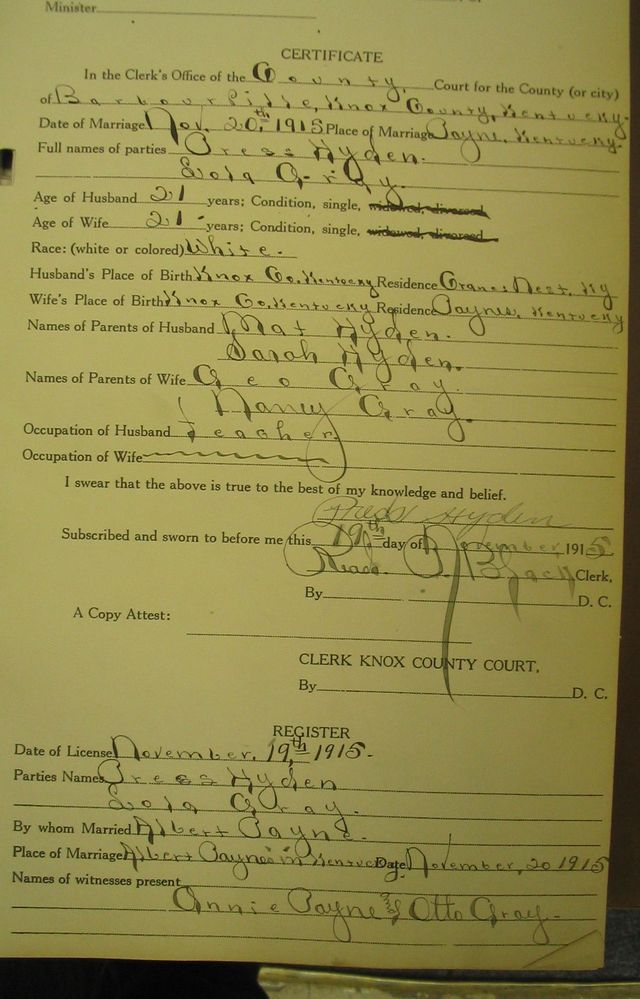 Minister
CERTIFICATE
In the Clerk's Office of the County, Court for the County (or city)
of Barbourville, Knox County, Kentucky.
Date of Marriage Nov. 20,th 1915 Place of Marriage Payne, Kentucky.
Full names of parties Press Hyden.
Lola Gray.
Age of Husband 21 years; Condition, single, widowed, divorced
Age of Wife 21 years; Condition, single, widowed, divorced
Race: (white or colored) White.
Husband's Place of Birth Knox Co, Kentucky Residence Cranes Nest, Ky
Wife's Place of Birth Knox Co, Kentucky Residence Paynes, Kentucky
Names of Parents of Husband Mat Hyden.
Sarah Hyden.
Names of Parents of Wife Geo Gray.
Nancy Gray.
Occupation of Husband Teacher
Occupation of Wife
I swear that the above is true to the best of my knowledge and belief.
Hyden
Subscribed and sworn to before me this 19th day of November 1915
Read Black Clerk,
By D. C.
A Copy Attest:
CLERK KNOX COUNTY COURT,
By D. C.
REGISTER
Date of License November, 19th 1915.
Parties Names Press Hyden
Lola Gray.
By whom Married Albert Payne.
Place of Marriage Albert Paynes in Kentucky Date November, 20 1915
Names of witnesses present
Annie Payne & Otto Gray.